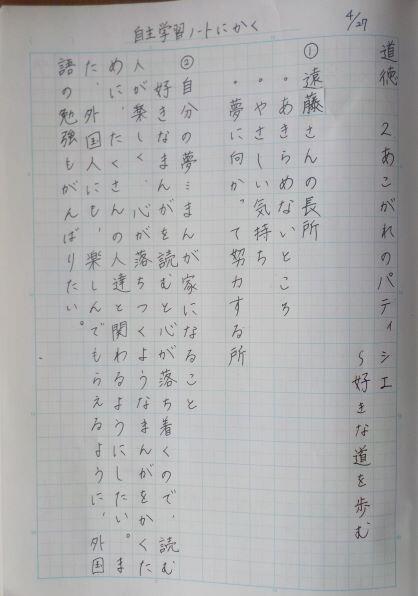 自主学習ノートにかく
4/27
道徳 2あこがれのパティシエ
～好きな道を歩む
①遠藤さんの長所
・あきらめないところ
・やさしい気持ち
・夢に向かって努力する所
②自分の夢…まんが家になること
好きなまんがを読むと心が落ち着くので、読む
人が楽しく、心が落ちつくようなまんがをかくた
めに、たくさんの人達と関わるようにしたい。ま
た、外国人にも、楽しんでもらえるように、外国
語の勉強もがんばりたい。